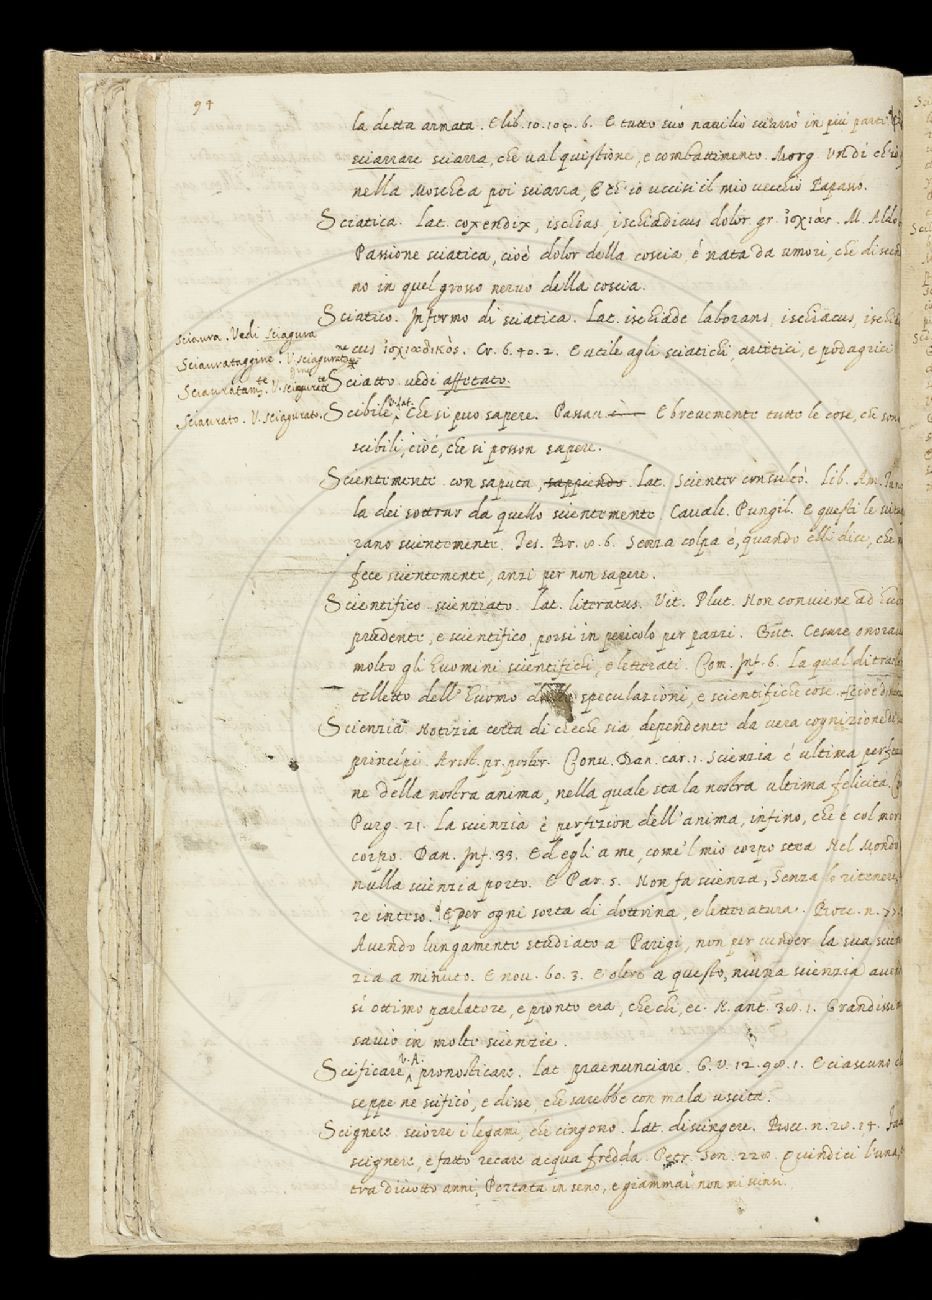 94
la detta armata. E lib. 10. 108. 6. E tutto suo navilio sciarrò in piu parti
sciarrare sciarra, che val quistione, e combattimento. Morg. Un dì ch'io
nella Moschea poi sciarra, E ch'io uccisi il mio vecchio Papasso.
Sciatica. Lat. coxendix, ischias, ischiadicus dolor gr. ἰσχιάς. M. Aldo.
Passione sciatica, cioè dolor della coscia, è nata da umori, che discen
no in quel grosso nervo della coscia.
Sciatico. Infermo di sciatica. Lat. ischiade laborans, ischiacus, ischi
cus ἰσχιαδικὸς. Cr. 6. 40. 2. E utile agli sciatichi artetici, e podagrici
Sciaura. Vedi Sciagura
Sciaurataggine. V. sciagurataggine
Sciauratamte. V. sciaguratamte
Sciaurato. V. sciagurato.
Sciatto vedi affettato.
Scibile, V. lat. Che si può sapere. Passav. E brevemente tutte le cose, che son
scibili, cioè, che si posson sapere.
Scientemente con saputa, sappiendo. Lat. scienter consultò. Lib. Am.
la dei sottrar da quello scientemente Cavalc. Pungil. E questi le
rano scientemente. Tes. Br. 8. 6. Senza colpa è, quando elli dice, che
fece scientemente, anzi per non sapere.
Scientifico scienziato. Lat. literatus. Vit. Plut. Non conviene ad huo
prudente, e scientifico, porsi in pericolo per pazzi. But. Cesare onorava
molto gli huomini scientifichi, e letterati. Com. Inf. 6. La qual di trar lo
telletto dell'huomo speculazioni, e scientifiche cose
Scienzia Notizia certa di checche sia dependente da vera cognizione de
principi. Arist. pr. poster. Conv. Dan. car. 1. Scienzia è ultima perfezio
ne della nostra anima, nella quale sta la nostra ultima felicità.
Purg. 21. La scienzia è perfezion dell'anima, infino, che è col mor
corpo. Dan. Inf. 33. Ed egli a me, come 'l mio corpo stea Nel Mondo
nulla scienzia porto. E Par. 5. Non fa scienza, Senza lo ritenere,
re inteso. E per ogni sorta di dottrina, e letteratura. Bocc. n. 77
Avendo lungamente studiato a Parigi, non per vender la sua scien
zia a minuto. E nov. 60. 3. E oltre a questo, niuna scienzia aven
sì ottimo parlatore, e pronto era, che chi, ec. N. ant. 38. 1. Grandissi
savio in molte scienzie.
Scificare, V. A. pronosticare. Lat praenunciare. G. V. 12. 98. 1. E ciascuno
seppe ne scificò, e disse, che sarebbe con mala uscita.
Scignere sciorre i legami, che cingono. Lat. discingere. Bocc. n. 28. 14.
scignere, e fatto recare acqua fredda Petr. Son. 228. Quindici l'una,
tra diciotto anni, Portata in seno, e giammai non mi scinsi.